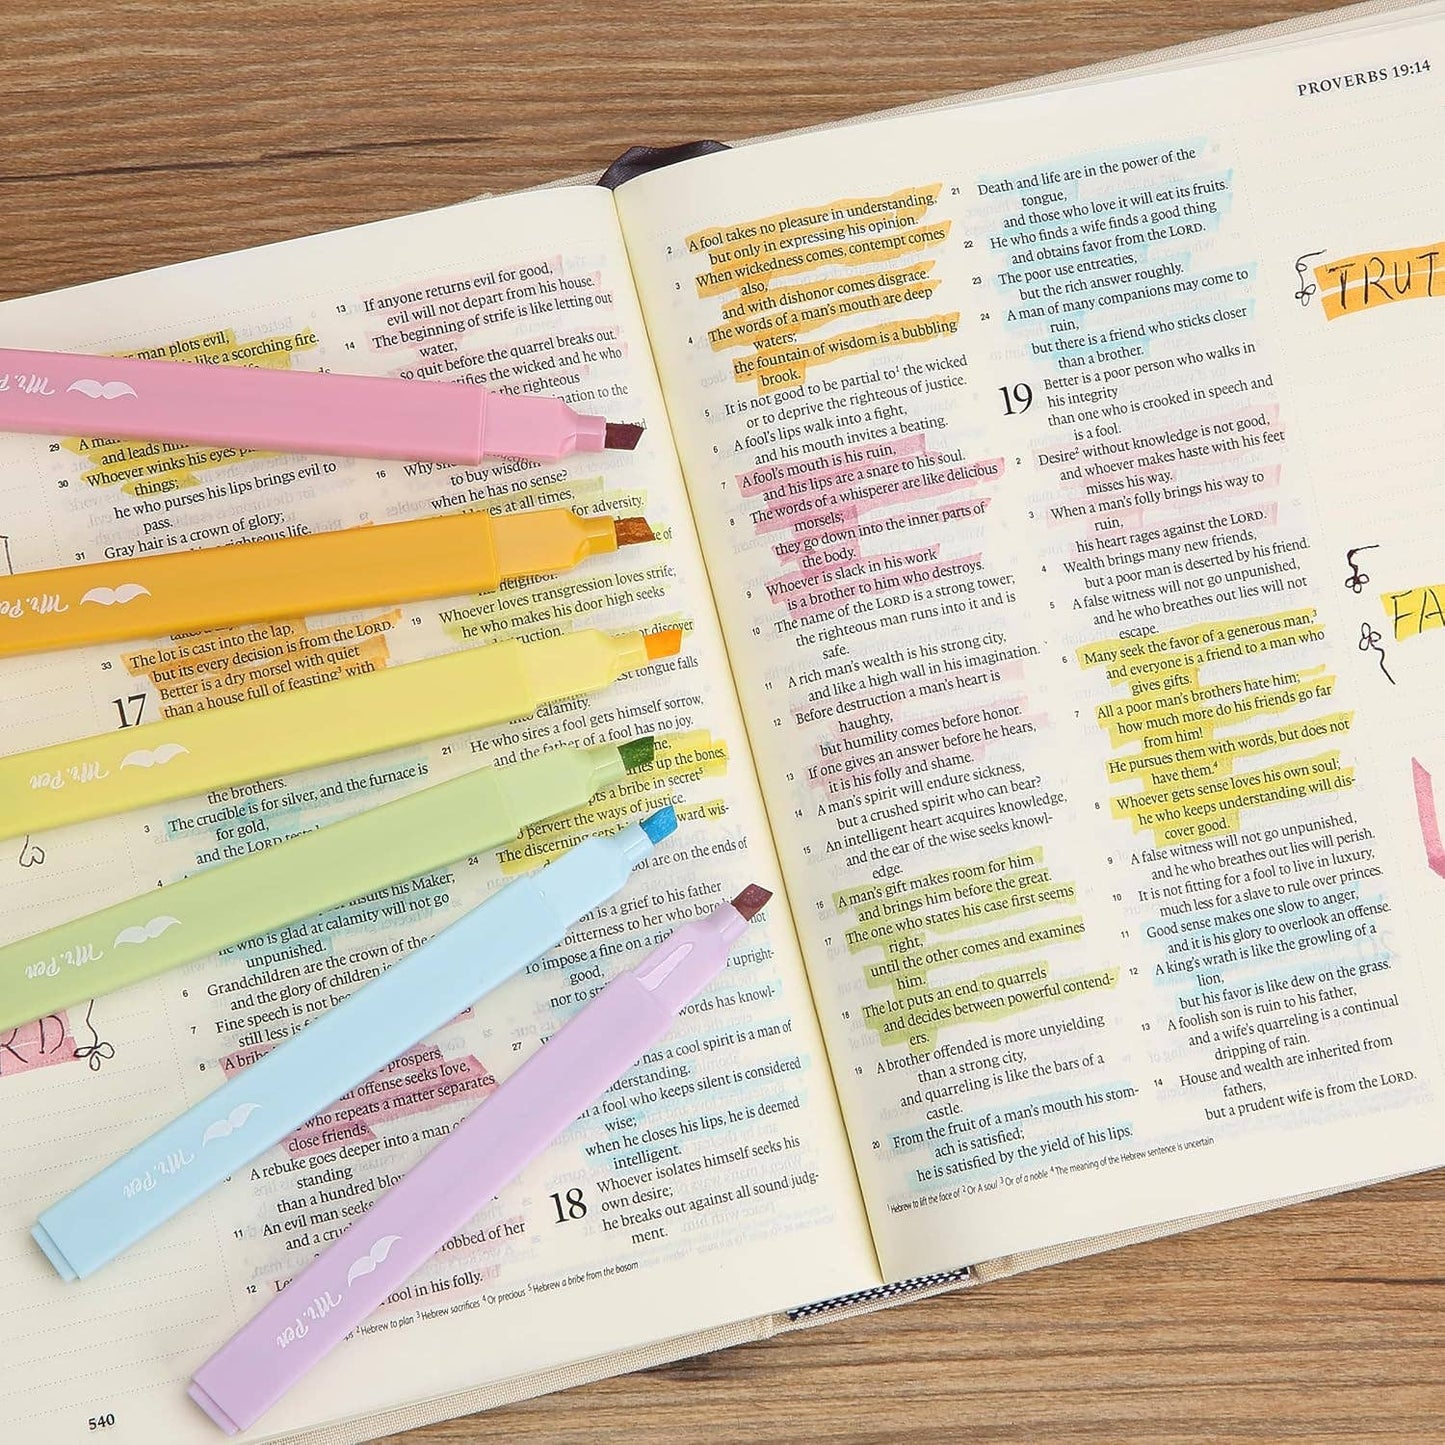 man plots evil,
like a scorching fire.
29 A man
and leads him
30 Whoever winks his eyes
things;
he who purses his lips brings evil to
pass.
31 Gray hair is a crown of glory;
righteous life.
takes a
The lot is cast into the lap,
33 but its every decision is from the LORD.
17 Better is a dry morsel with quiet
than a house full of feasting³ with
the brothers.
3 The crucible is for silver, and the furnace is
for gold,
and the LORD tests
4 A
insults his Maker;
he who is glad at calamity will not go
unpunished.
6 Grandchildren are the crown of the
and the glory of children is
7 Fine speech is not
still less is
8 A bribe
prospers.
an offense seeks love,
who repeats a matter separates
close friends.
A rebuke goes deeper into a man of
standing
than a hundred blows
11 An evil man seeks
and a
12 Let
robbed of her
fool in his folly.
² Hebrew to plan ³ Hebrew sacrifices ⁴ Or precious ⁵ Hebrew a bribe from the bosom
540
13 If anyone returns evil for good,
evil will not depart from his house.
14 The beginning of strife is like letting out
water,
so quit before the quarrel breaks out.
the wicked and he who
the righteous
to the
16 Why
to buy wisdom
when he has no sense?
loves at all times,
for adversity.
of
neighbor.
19 Whoever loves transgression loves strife;
he who makes his door high seeks
discover
tongue falls
calamity.
21 He who sires a fool gets himself sorrow,
and the father of a fool has no joy.
up the bones.
a bribe in secret⁵
pervert the ways of justice.
24 The discerning sets his
toward wis-
are on the ends of
is a grief to his father
bitterness to her who bore
not
To impose a fine on a
good,
nor to
upright-
words has knowl-
27
has a cool spirit is a man of
understanding.
a fool who keeps silent is considered
wise;
when he closes his lips, he is deemed
intelligent.
18 Whoever isolates himself seeks his
own desire;
he breaks out against all sound judg-
ment.
Mr. Pen
Mr. Pen
Mr. Pen
Mr. Pen
Mr. Pen
Mr. Pen
PROVERBS 19:14
2 A fool takes no pleasure in understanding,
but only in expressing his opinion.
3 When wickedness comes, contempt comes
also,
and with dishonor comes disgrace.
4 The words of a man's mouth are deep
waters;
the fountain of wisdom is a bubbling
brook.
5 It is not good to be partial to¹ the wicked
or to deprive the righteous of justice.
6 A fool's lips walk into a fight,
and his mouth invites a beating.
7 A fool's mouth is his ruin,
and his lips are a snare to his soul.
8 The words of a whisperer are like delicious
morsels;
they go down into the inner parts of
the body.
9 Whoever is slack in his work
is a brother to him who destroys.
10 The name of the LORD is a strong tower;
the righteous man runs into it and is
safe.
11 A rich man's wealth is his strong city,
and like a high wall in his imagination.
12 Before destruction a man's heart is
haughty,
but humility comes before honor.
13 If one gives an answer before he hears,
it is his folly and shame.
14 A man's spirit will endure sickness,
but a crushed spirit who can bear?
15 An intelligent heart acquires knowledge,
and the ear of the wise seeks knowl-
edge.
16 A man's gift makes room for him
and brings him before the great.
17 The one who states his case first seems
right,
until the other comes and examines
him.
18 The lot puts an end to quarrels
and decides between powerful contend-
ers.
19 A brother offended is more unyielding
than a strong city,
and quarreling is like the bars of a
castle.
20 From the fruit of a man's mouth his stom-
ach is satisfied;
he is satisfied by the yield of his lips.
21 Death and life are in the power of the
tongue,
and those who love it will eat its fruits.
22 He who finds a wife finds a good thing
and obtains favor from the LORD.
23 The poor use entreaties,
but the rich answer roughly.
24 A man of many companions may come to
ruin,
but there is a friend who sticks closer
than a brother.
19 Better is a poor person who walks in
his integrity
than one who is crooked in speech and
is a fool.
2 Desire² without knowledge is not good,
and whoever makes haste with his feet
misses his way.
3 When a man's folly brings his way to
ruin,
his heart rages against the LORD.
4 Wealth brings many new friends,
but a poor man is deserted by his friend.
5 A false witness will not go unpunished,
and he who breathes out lies will not
escape.
6 Many seek the favor of a generous man,³
and everyone is a friend to a man who
gives gifts.
7 All a poor man's brothers hate him;
how much more do his friends go far
from him!
He pursues them with words, but does not
have them.⁴
8 Whoever gets sense loves his own soul;
he who keeps understanding will dis-
cover good.
9 A false witness will not go unpunished,
and he who breathes out lies will perish.
10 It is not fitting for a fool to live in luxury,
much less for a slave to rule over princes.
11 Good sense makes one slow to anger,
and it is his glory to overlook an offense.
12 A king's wrath is like the growling of a
lion,
but his favor is like dew on the grass.
13 A foolish son is ruin to his father,
and a wife's quarreling is a continual
dripping of rain.
14 House and wealth are inherited from
fathers,
but a prudent wife is from the LORD.
¹ Hebrew to lift the face of ² Or A soul ³ Or of a noble ⁴ The meaning of the Hebrew sentence is uncertain
TRUT
FA
RD